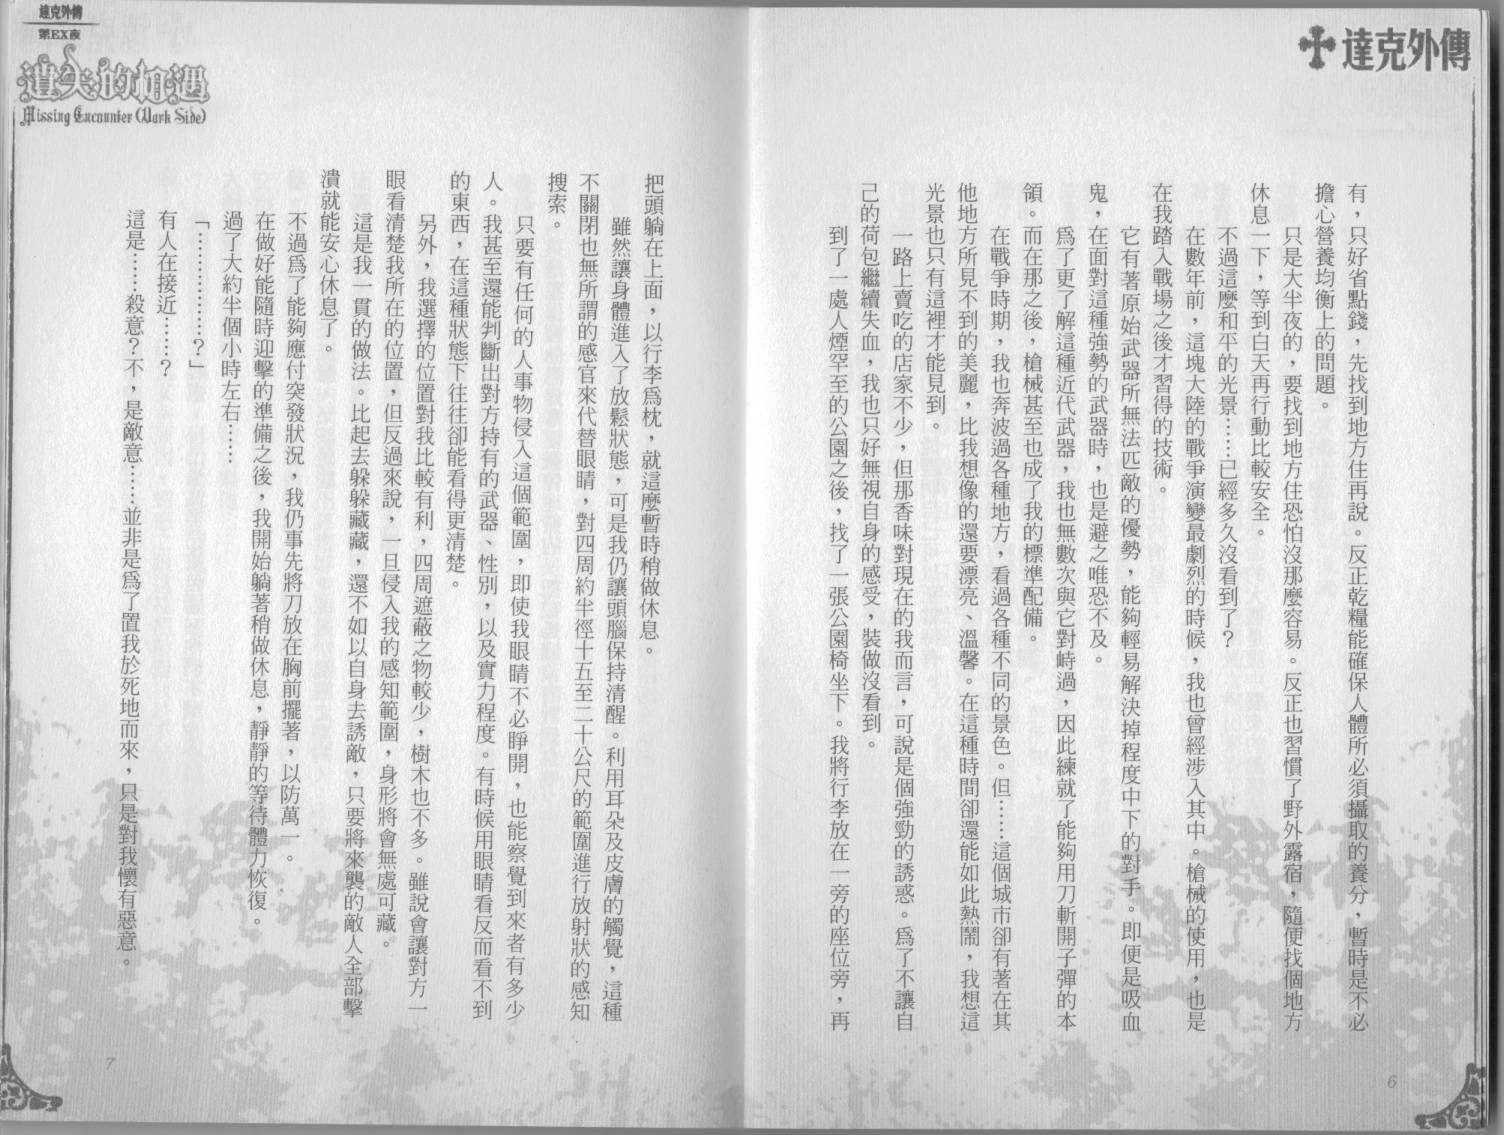 達克外傳
有，只好省點錢，先找到地方住再說。反正乾糧能確保人體所必須攝取的養分，暫時是不必
擔心營養均衡上的問題。
只是大半夜的，要找到地方住恐怕沒那麼容易。反正也習慣了野外露宿，隨便找個地方
休息一下，等到白天再行動比較安全。
不過這麼和平的光景……已經多久沒看到了？
在數年前，這塊大陸的戰爭演變最劇烈的時候，我也曾經涉入其中。槍械的使用，也是
在我踏入戰場之後才習得的技術。
它有著原始武器所無法匹敵的優勢，能夠輕易解決掉程度中下的對手。即便是吸血
鬼，在面對這種強勢的武器時，也是避之唯恐不及。
為了更了解這種近代武器，我也無數次與它對峙過，因此練就了能夠用刀斬開子彈的本
領。而在那之後，槍械甚至也成了我的標準配備。
在戰爭時期，我也奔波過各種地方，看過各種不同的景色。但……這個城市卻有著在其
他地方所見不到的美麗，比我想像的還要漂亮、溫馨。在這種時間卻還能如此熱鬧，我想這
光景也只有這裡才能見到。
一路上賣吃的店家不少，但那香味對現在的我而言，可說是個強勁的誘惑。為了不讓自
己的荷包繼續失血，我也只好無視自身的感受，裝做沒看到。
到了一處人煙罕至的公園之後，找了一張公園椅坐下。我將行李放在一旁的座位旁，再
6
達克外傳
第EX夜
遺失的相遇
Missing Encounter (Dark Side)
把頭躺在上面，以行李為枕，就這麼暫時稍做休息。
雖然讓身體進入了放鬆狀態，可是我仍讓頭腦保持清醒。利用耳朵及皮膚的觸覺，這種
不關閉也無所謂的感官來代替眼睛，對四周約半徑十五至二十公尺的範圍進行放射狀的感知
搜索。
只要有任何的人事物侵入這個範圍，即使我眼睛不必睜開，也能察覺到來者有多少
人。我甚至還能判斷出對方持有的武器、性別，以及實力程度。有時候用眼睛看反而看不到
的東西，在這種狀態下往往卻能看得更清楚。
另外，我選擇的位置對我比較有利，四周遮蔽之物較少，樹木也不多。雖說會讓對方一
眼看清楚我所在的位置，但反過來說，一旦侵入我的感知範圍，身形將會無處可藏。
這是我一貫的做法。比起去躲躲藏藏，還不如以自身去誘敵，只要將來襲的敵人全部擊
潰就能安心休息了。
不過為了能夠應付突發狀況，我仍事先將刀放在胸前擺著，以防萬一。
在做好能隨時迎擊的準備之後，我開始躺著稍做休息，靜靜的等待體力恢復。
過了大約半個小時左右……
「……………？」
有人在接近……？
這是……殺意？不，是敵意……並非是為了置我於死地而來，只是對我懷有惡意。
7